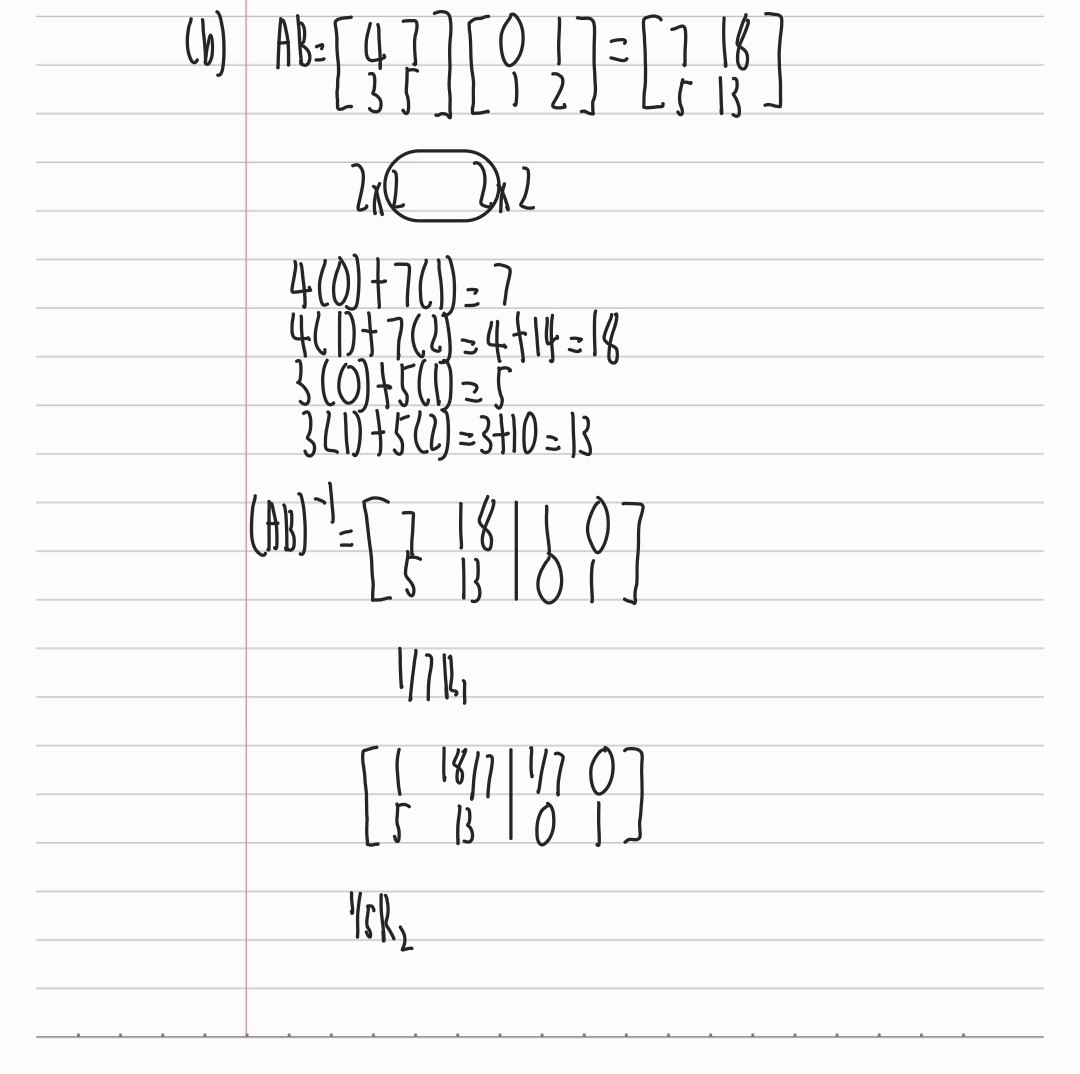 (b) AB= [ 4 7 ] [ 0 1 ] = [ 7 18 ]
[ 3 5 ] [ 1 2 ] [ 5 13 ]
2x2 2x2
4(0)+7(1)=7
4(1)+7(2)=4+14=18
3(0)+5(1)=5
3(1)+5(2)=3+10=13
(AB)⁻¹= [ 7 18 | 1 0 ]
[ 5 13 | 0 1 ]
1/7R₁
[ 1 18/7 | 1/7 0 ]
[ 5 13 | 0 1 ]
1/5R₂